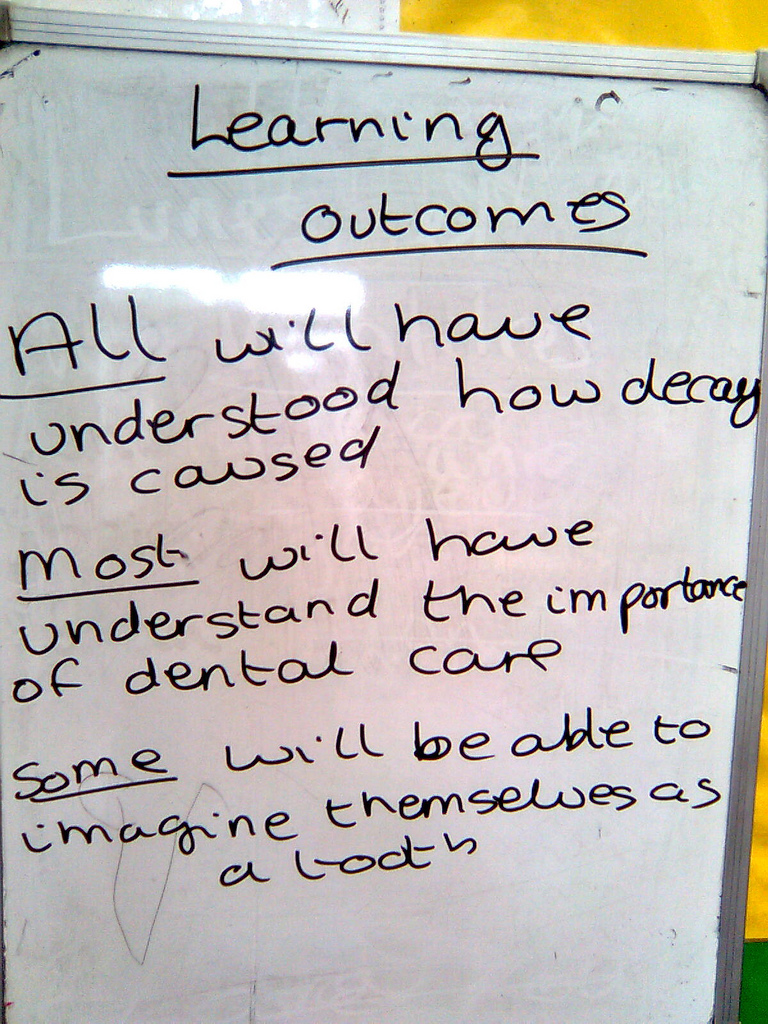 Learning
outcomes
All will have
understood how decay
is caused
Most will have
understand the importance
of dental care
Some will be able to
imagine themselves as
a tooth